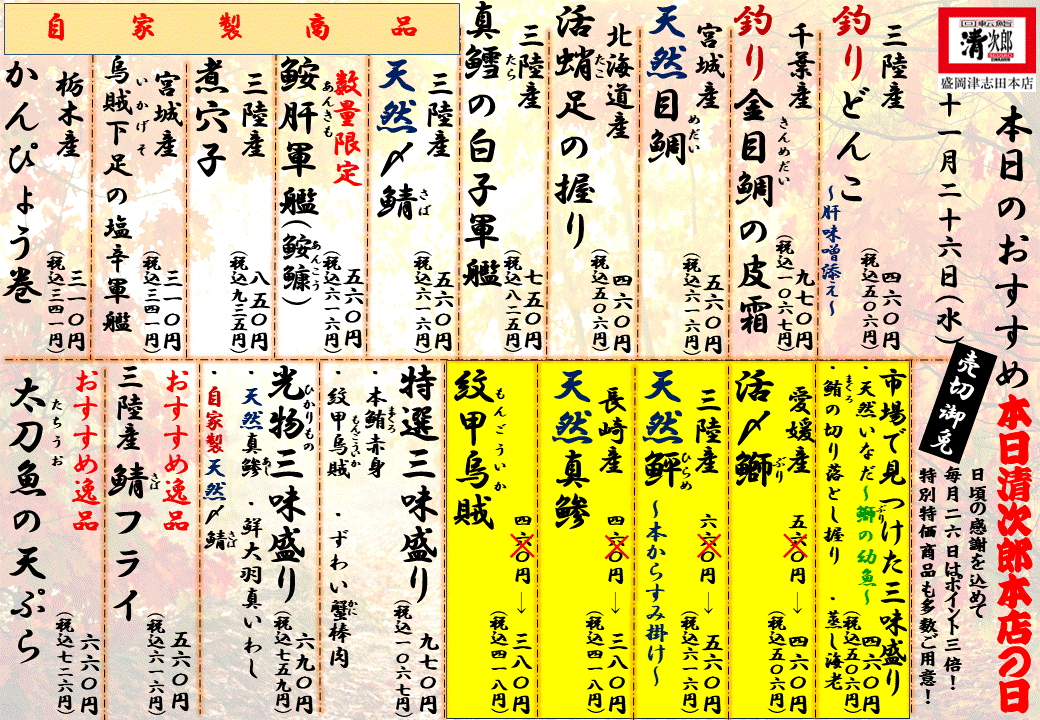 回転鮨
清次郎
盛岡津志田本店
本日のおすすめ
十一月二十六日(水)
売切御免
本日清次郎本店の日
日頃の感謝を込めて
毎月二六日はポイント三倍!
特別特価商品も多数ご用意!
三陸産
釣りどんこ
~肝味噌添え~
四六〇円
(税込五〇六円)
千葉産
釣り金目鯛の皮霜
きんめだい
九七〇円
(税込一〇六七円)
宮城産
天然目鯛
めだい
五六〇円
(税込六一六円)
北海道産
活蛸足の握り
たこ
四六〇円
(税込五〇六円)
三陸産
真鱈の白子軍艦
たら
七五〇円
(税込八二五円)
自家製商品
三陸産
天然〆鯖
さば
五六〇円
(税込六一六円)
数量限定
鮟肝軍艦(鮟鱇)
あんきも
あんこう
五六〇円
(税込六一六円)
三陸産
煮穴子
八五〇円
(税込九三五円)
宮城産
烏賊下足の塩辛軍艦
いかげそ
三一〇円
(税込三四一円)
栃木産
かんぴょう巻
三一〇円
(税込三四一円)
市場で見つけた三味盛り
・天然いなだ~鰤の幼魚~
ぶり
・鮪の切り落とし握り
まぐろ
・蒸し海老
四六〇円
(税込五〇六円)
愛媛産
活〆鰤
ぶり
五六〇円→四六〇円
(税込五〇六円)
三陸産
天然鮃
ひらめ
~本からすみ掛け~
六六〇円→五六〇円
(税込六一六円)
長崎産
天然真鯵
四六〇円→三八〇円
(税込四一八円)
紋甲烏賊
もんごういか
四六〇円→三八〇円
(税込四一八円)
特選三味盛り
・本鮪赤身
まぐろ
・紋甲烏賊
もんごういか
・ずわい蟹棒肉
かに
九七〇円
(税込一〇六七円)
光物三味盛り
ひかりもの
・天然真鯵
あじ
・鮮大羽真いわし
・自家製天然〆鯖
さば
六九〇円
(税込七五九円)
おすすめ逸品
三陸産 鯖フライ
さば
五六〇円
(税込六一六円)
おすすめ逸品
太刀魚の天ぷら
たちうお
六六〇円
(税込七二六円)